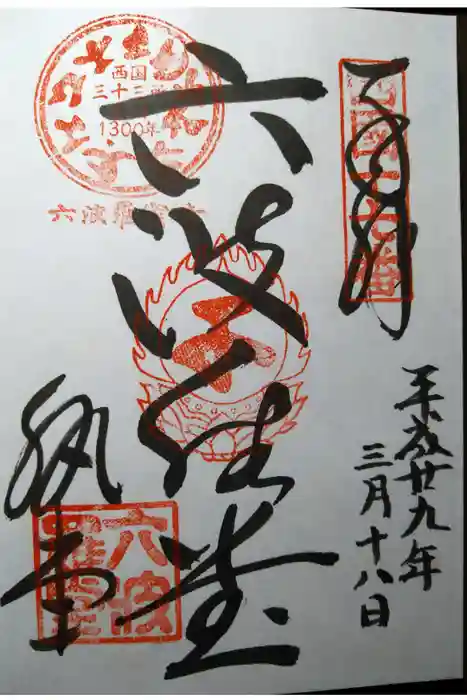 奉拝
西国十七番
平成廿九年
三月十八日
六波羅堂
西国
三十三所
1300年
六波羅蜜寺
執事
六波